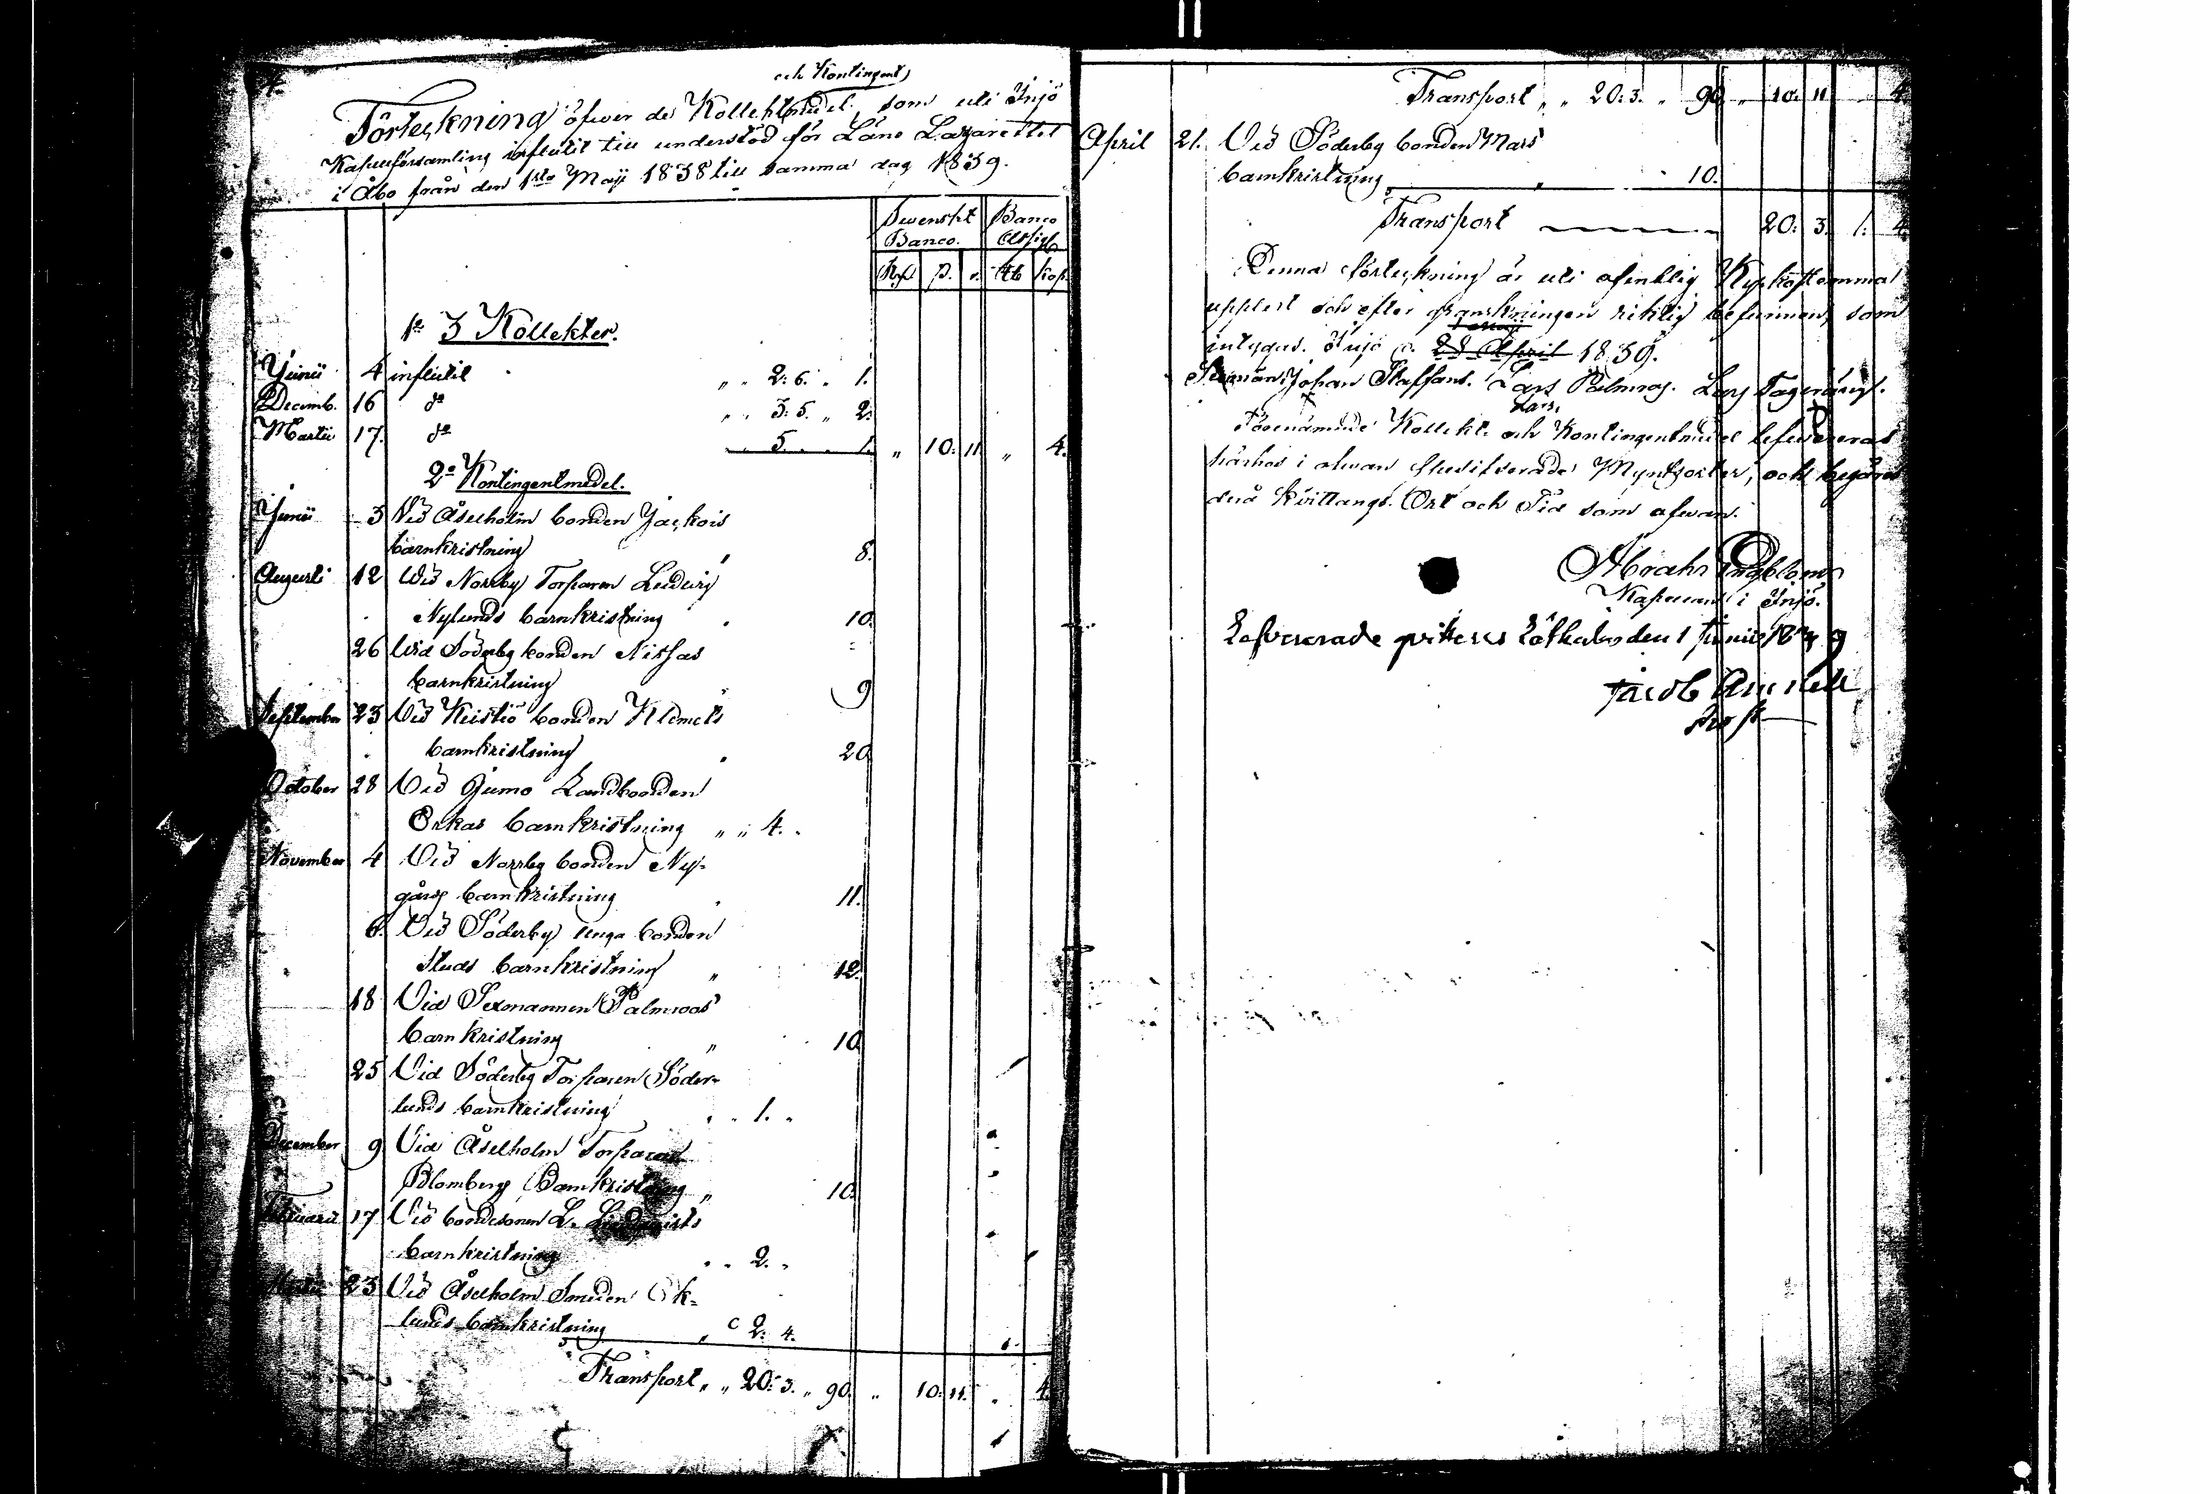 och Kontingent
Förteckning öfwer de Kollektmedel, som uti Injö
Kapellförsamling influtit till understöd för Läns Lazarettet
i Åbo från den 1sta Maji 1838 till samma dag 1839.
Swenskt Banco
Banco. Assign.
Rd ß. r. Rb kop.
1o 3 Kollekter.
Junii 4 influtit „ „ 2: 6. „ 1.
Decemb. 16 do „ „ 3: 5. „ 2.
Martii 17. do „ „ 5. „ „ 1. „ 10: 11 „ 4.
2o Kontingentmedel.
Junii 3 Vid Åselholm bonden Jackois
barnkristning 8.
Augusti 12 Vid Norrby Torparen Ludwig
Nylunds barnkristning 10.
26 Vid Söderby bonden Nissas
barnkristning 9
September 23 Vid Keistiö bonden Klemets
barnkristning 20
October 28 Vid Jumo Landbonden
Orkas barnkristning „ „ 4. „
November 4 Vid Norrby bonden Ny-
gårds barnkristning 11.
6. Vid Söderby unga bonden
Studs barnkristning „ 12.
18 Vid Sexmannen Palmroos
barnkristning „ 10
25 Vid Söderby Torparen Söder-
lunds barnkristning „ „ 1. „
December 9 Vid Åselholm Torparen
Blombergs Barnkristning „ 10.
Februarii 17 Vid bondesonen L. Lindqvists
barnkristning „ „ 2. „
Martii 23 Vid Åselholm Smeden Ek-
lunds barnkristning „ 2: 4.
Transport „ „ 20: 3. „ 90. „ 10: 11. „ 4.
Transport „ „ 20: 3. „ 90 „ 10: 11 „ 4.
April 21. Vid Söderby bonden Mars
barnkristning 10.
Transport 20: 3. 1: 4.
Denna förteckning är uti offentlig Kyrkostämma
uppläst och efter granskningen riktig befunnen, som
intygas. Injö d. 28 April 1839.
Sexmän: Johan Staffans. Lars Palmroos. Lars Tagenängs.
Lars.
Förenämnde Kollekt- och Kontingentmedel lefwereras
härhos i ofwan specificerade Myntsorter, och begäres
derå kvittangs. Ort och Tid som ofwan.
Abrah: Engblom,
Kapellan i Injö.
Lefvererade qvitteras Lötkulla den 1 Junii 1839
Jacob
Prost